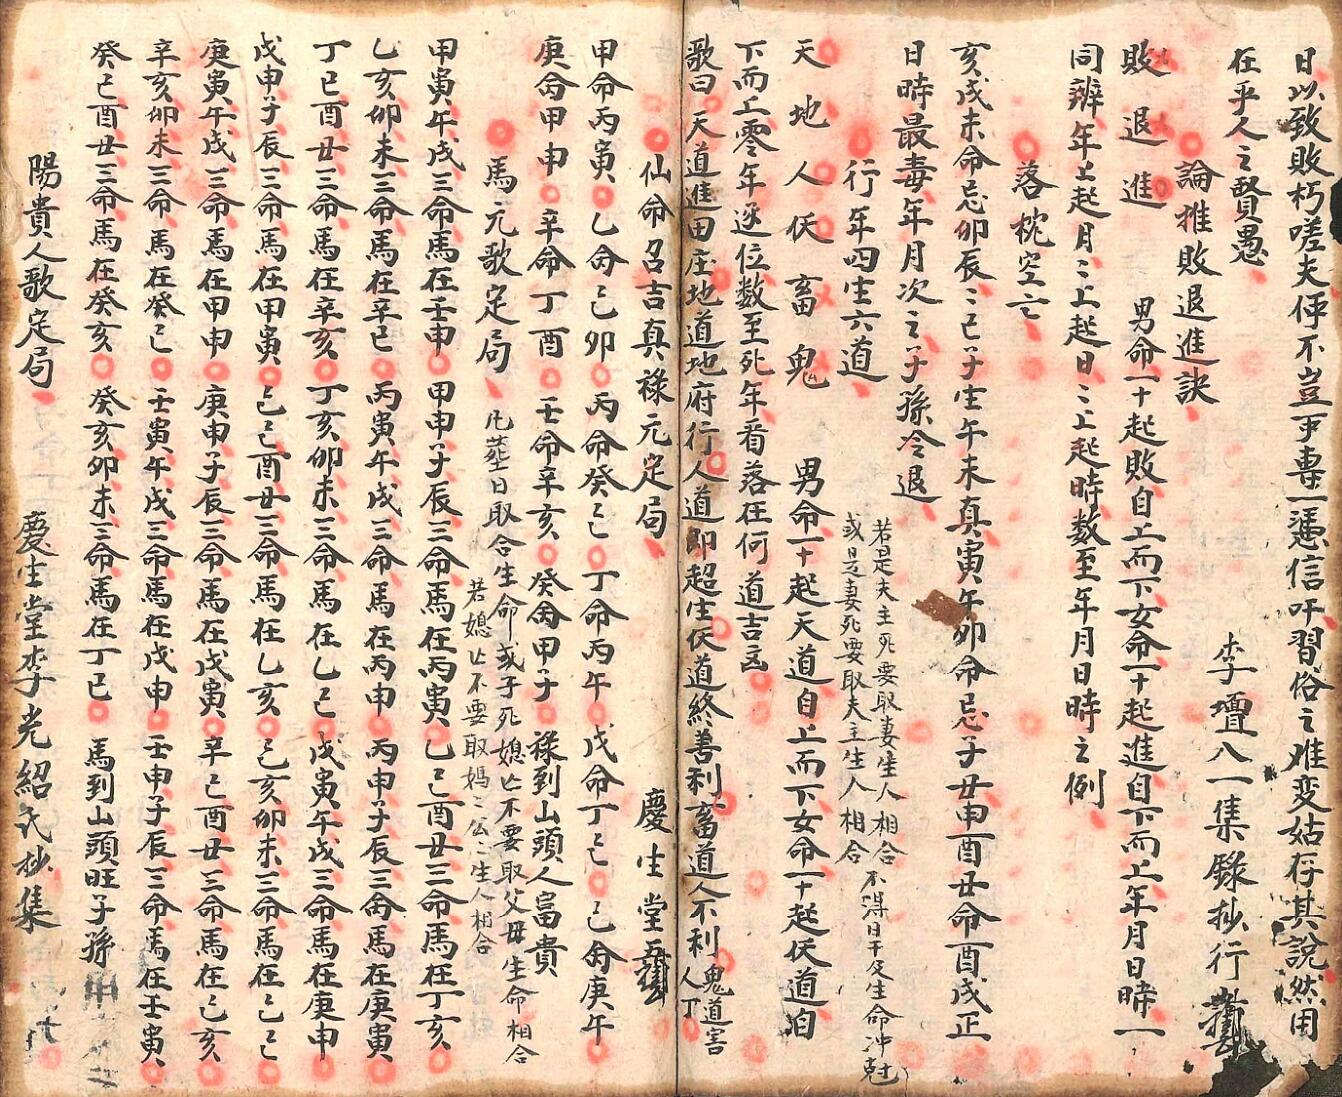 日以致敗朽嗟夫伻不豈專一憑信吓習俗之难变姑存其說然用
在乎人之賢愚
李壇八一集錄抄行
論推敗退進訣
敗退進 男命一十起敗自上而下女命一十起進自下而上年月日時一
同辦年上起月〻上起日〻上起時数至年月日時之例
落枕空亡
亥戌未命忌卯辰〻巳子生午未真寅午卯命忌子丑申酉丑命酉戌正
日時最毒年月次之子孫冷退
行年四生六道
若是夫主死要取妻生人相合
或是妻死要取夫主生人相合
不淂日干支生命冲尅
天地人伏畜鬼 男命一十起天道自上而下女命一十起伏道自
下而上零年逐位数至死年看落在何道吉凶
歌曰天道進田庄地道地府行人道即超生伏道終善利畜道人不利人丁鬼道害
仙命召吉真禄元定局 慶生堂
甲命丙寅 乙命己卯 丙命癸巳 丁命丙午 戊命丁巳 己命庚午
庚命甲申 辛命丁酉 壬命辛亥 癸命甲子 禄到山頭人富貴
馬元歌定局 凡葬日取合生命或子死媳亡不要取父母生命相合
若媳亡不要取媽〻公〻生人相合
甲寅午戌三命馬在壬申 甲申子辰三命馬在丙寅 乙巳酉丑三命馬在丁亥
乙亥卯未三命馬在辛巳 丙寅午戌三命馬在丙申 丙申子辰三命馬在庚寅
丁巳酉丑三命馬在辛亥 丁亥卯未三命馬在乙巳 戊寅午戌三命馬在庚申
戊申子辰三命馬在甲寅 己巳酉丑三命馬在乙亥 己亥卯未三命馬在己巳
庚寅午戌三命馬在甲申 庚申子辰三命馬在戊寅 辛巳酉丑三命馬在己亥
辛亥卯未三命馬在癸巳 壬寅午戌三命馬在戊申 壬申子辰三命馬在壬寅
癸巳酉丑三命馬在癸亥 癸亥卯未三命馬在丁巳 馬到山頭旺子孫
陽貴人歌定局 慶生堂李光紹氏抄集